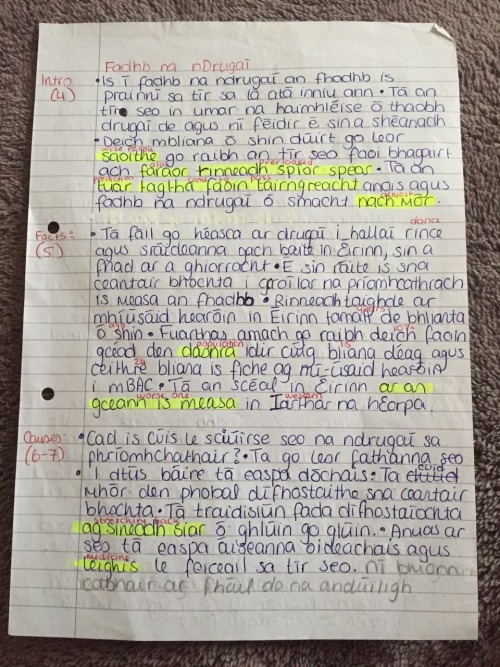 Fadhb na nDrugaí
Intro (4)
• Is í fadhb na ndrugaí an fhadhb is
práinní sa tír sa lá atá inniu ann • Tá an
tír seo in umar na haimhléise ó thaobh
drugaí de agus ní féidir é sin a shéanadh
• Deich mbliana ó shin dúirt go leor
wise people
saoithe go raibh an tír seo faoi bhagairt
alas overlooked
ach faraor rinneadh spior spear • Tá an
prediction come to pass
tuar tagtha faoin tairngreacht anois agus
almost
fadhb na ndrugaí ó smacht nach mór
dance
Facts: (5)
• Tá fáil go héasca ar drugaí i hallaí rince
agus sráideanna gach baile in Éirinn, sin a
fhad ar a ghiorracht • É sin ráite is sna
ceantair bhochta i gcroílar na príomhcathrach
is measa an fhadhb • Rinneadh taighde ar
mhíúsáid hearóin in Éirinn tamall de bhlianta
ago
ó shin • Fuarthas amach go raibh deich faoin
population 15
gcéad den daonra idir cúig bliana déag agus
24
ceithre bliana is fiche ag mí-úsáid hearóin
i mBÁC • Tá an scéal in Éirinn ar an
worst one western
gceann is measa in Iarthar na hEorpa.
Causes: (6-7)
• Cad is cúis le sciúirse seo na ndrugaí sa
phríomhchathair? • Tá go leor fáthanna seo
• I dtús báire tá easpa dóchais • Tá cuid
mhór den phobal dífhostaithe sna ceantair
bhochta • Tá traidisiún fada dífhostaíochta
stretching back
ag síneadh siar ó ghlúin go glúin. • Anuas ar
seo tá easpa áiseanna oideachais agus
medicine
leighis le feiceáil sa tír seo. ní bhíonn
cabhair ar fháil do na andúiligh